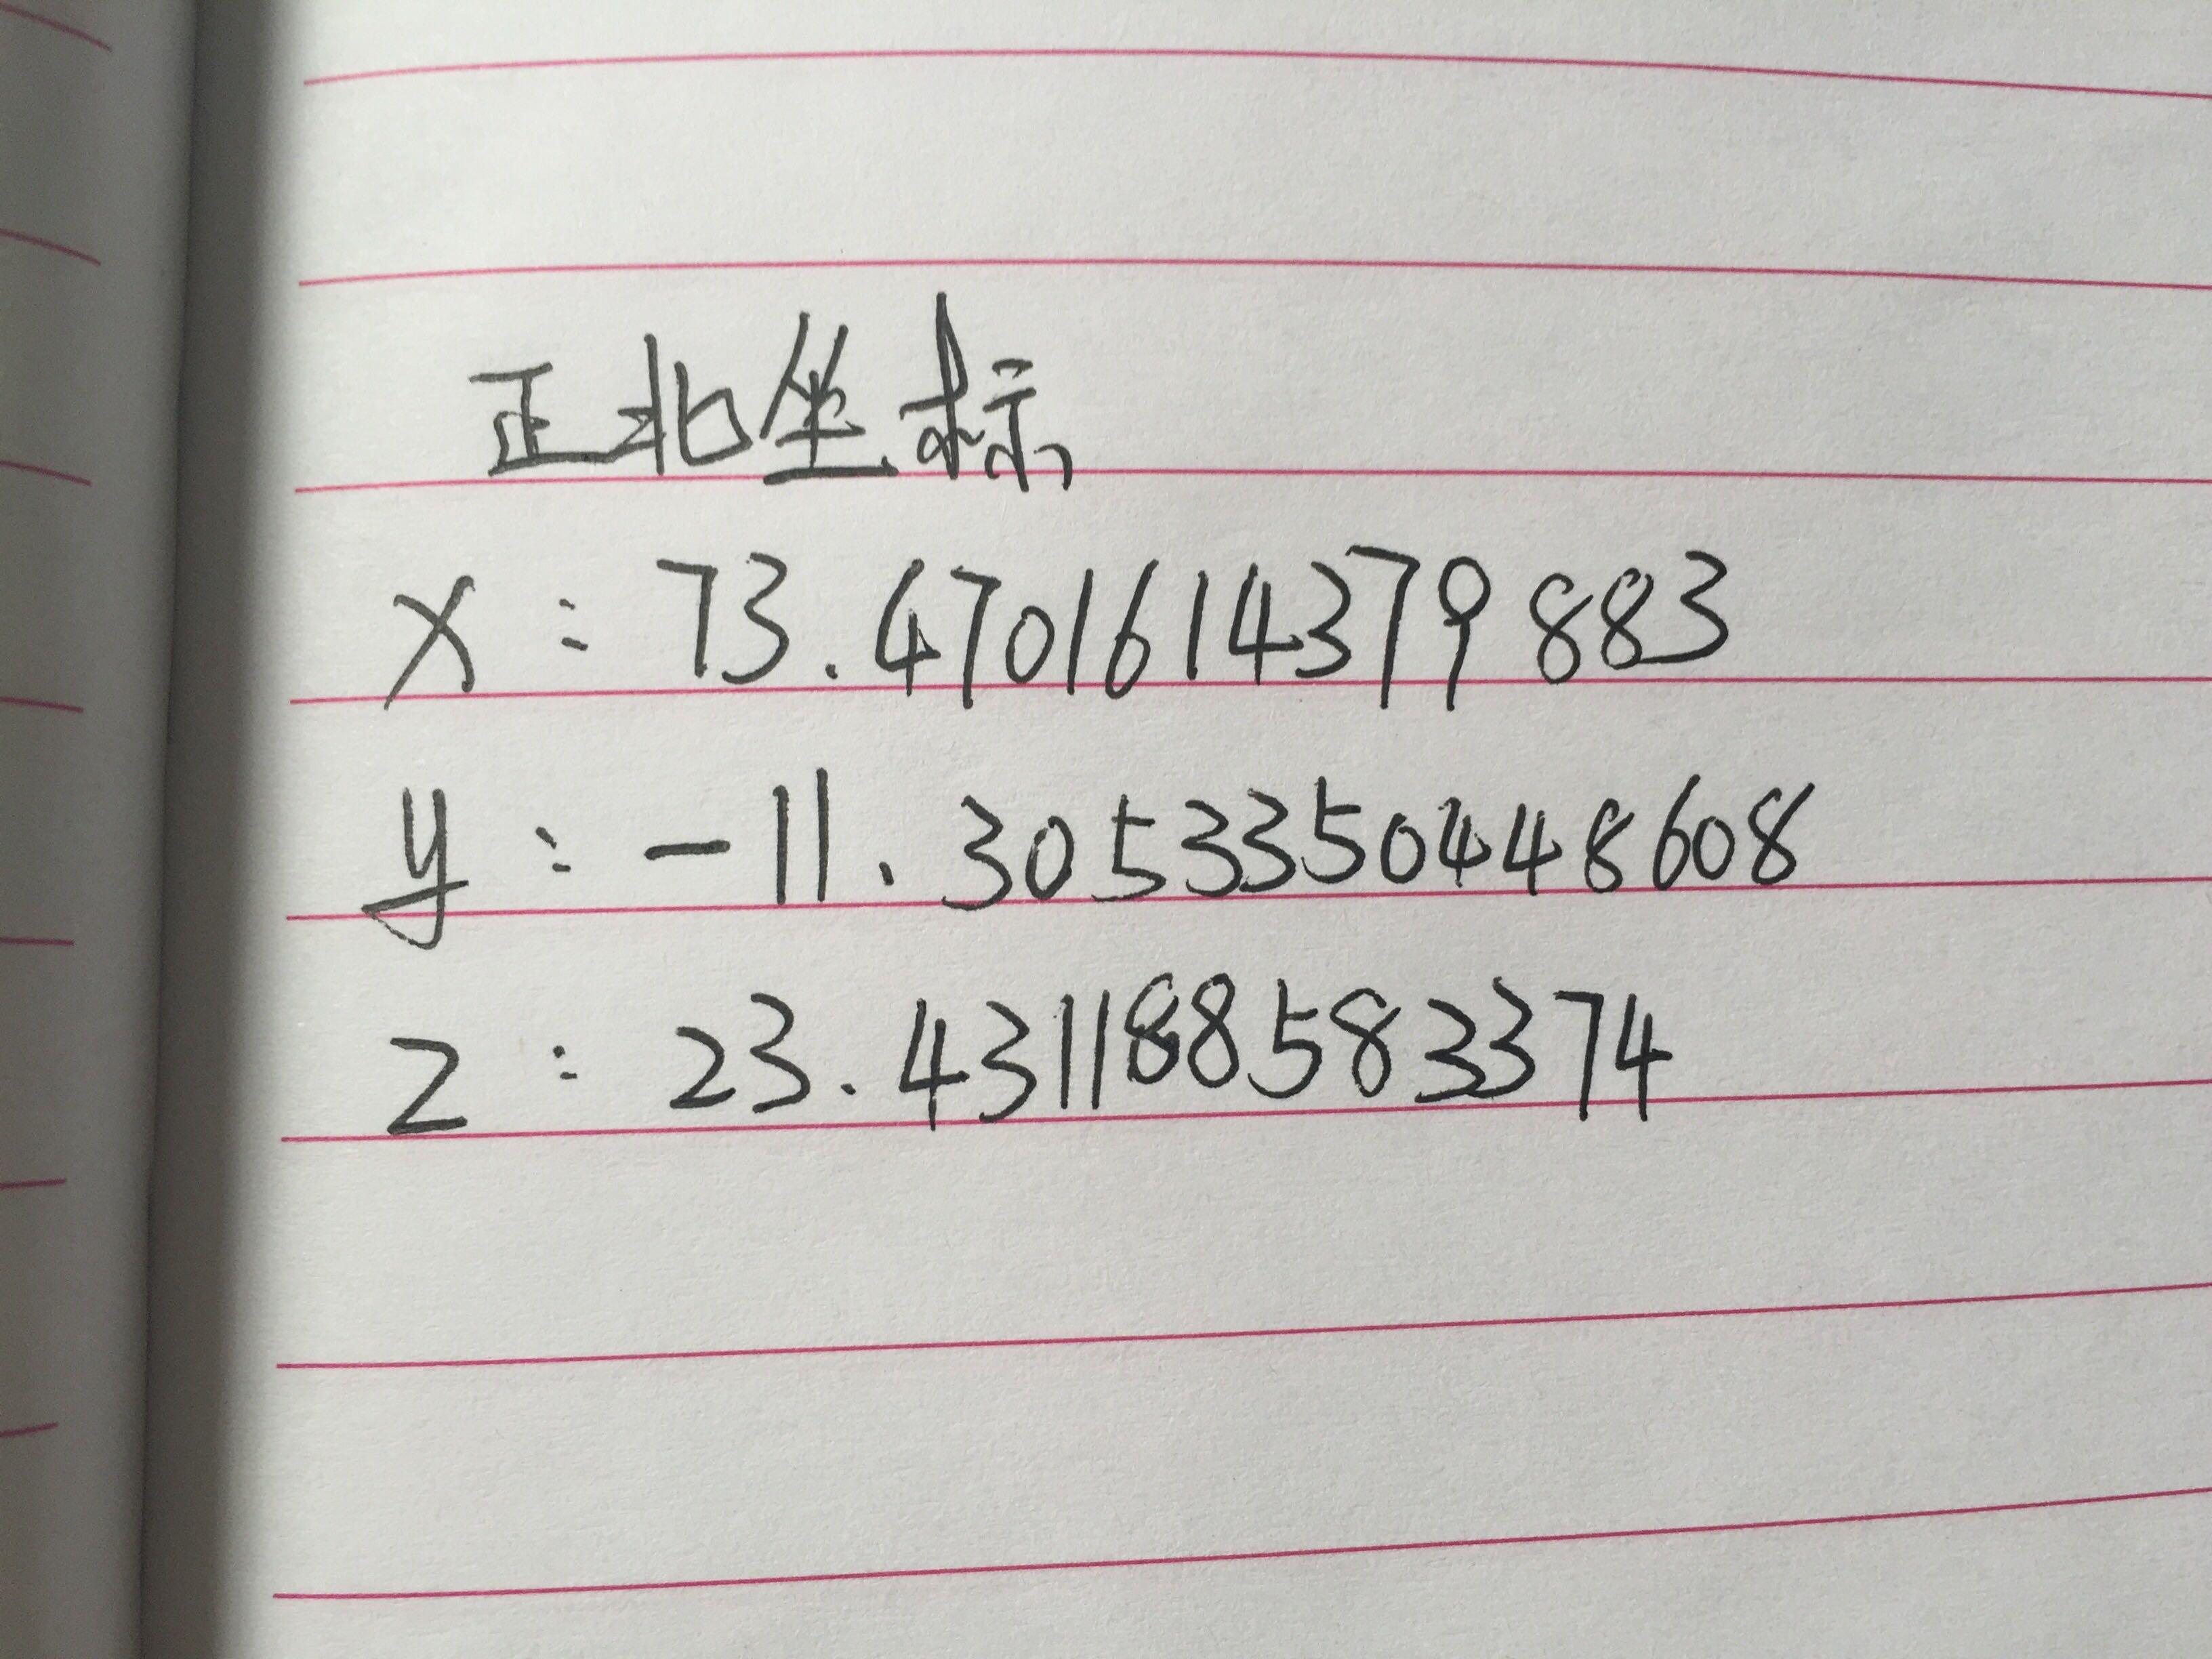 正北坐标
x：73.4701614379883
y：-11.3053350448608
z：23.431188583374